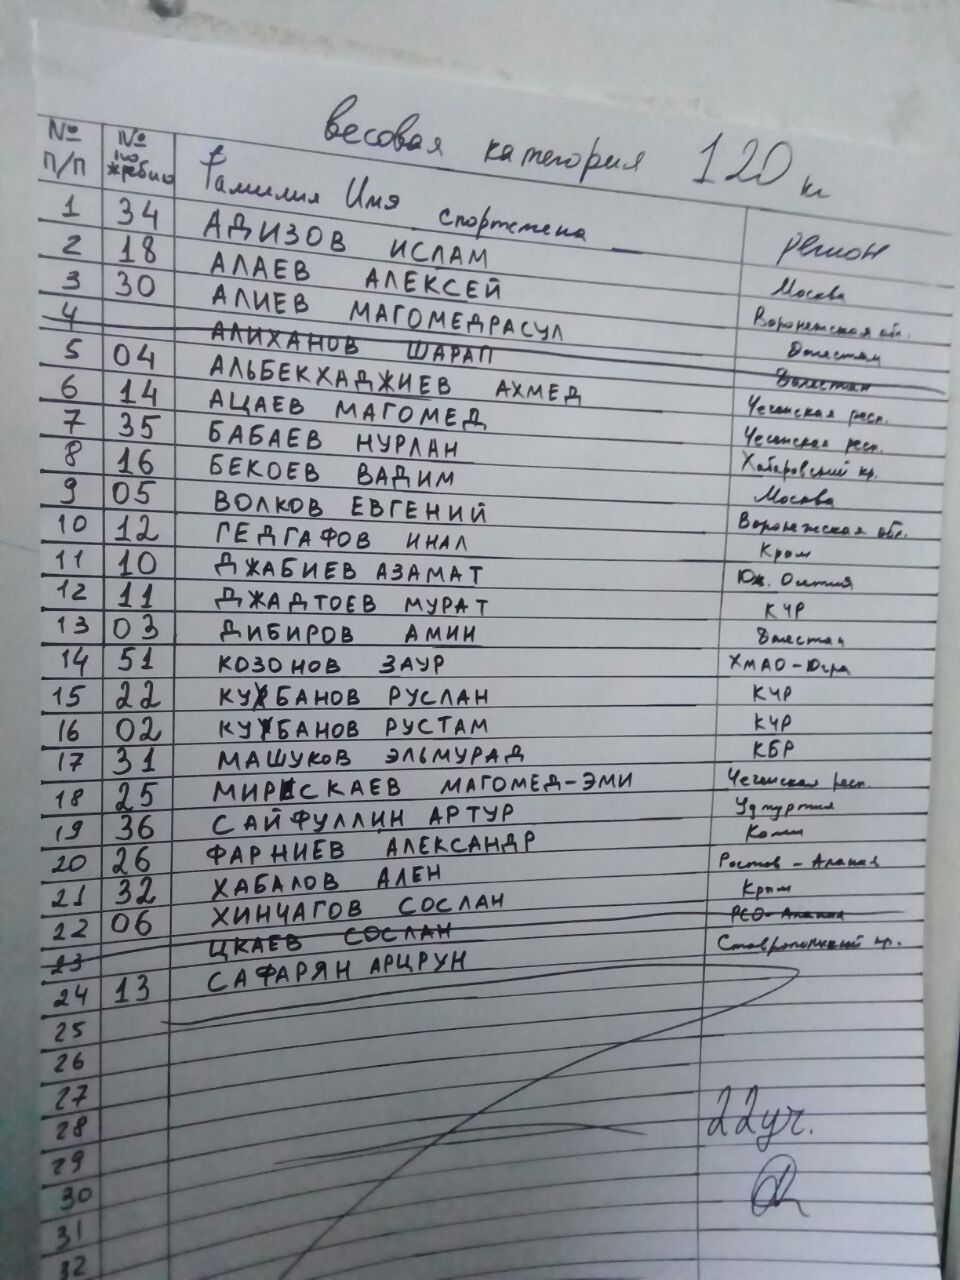 весовая категория 120 кг
№ п/п № по жребию Фамилия Имя спортсмена регион
1 34 АДИЗОВ ИСЛАМ Москва
2 18 АЛАЕВ АЛЕКСЕЙ Воронежская обл.
3 30 АЛИЕВ МАГОМЕДРАСУЛ Дагестан
4 АЛИХАНОВ ШАРАП Дагестан
5 04 АЛЬБЕКХАДЖИЕВ АХМЕД Чеченская респ.
6 14 АЦАЕВ МАГОМЕД Чеченская респ.
7 35 БАБАЕВ НУРЛАН Хабаровский кр.
8 16 БЕКОЕВ ВАДИМ Москва
9 05 ВОЛКОВ ЕВГЕНИЙ Воронежская обл.
10 12 ГЕДГАФОВ ИНАЛ Крым
11 10 ДЖАБИЕВ АЗАМАТ Юж. Осетия
12 11 ДЖАДТОЕВ МУРАТ КЧР
13 03 ДИБИРОВ АМИН Дагестан
14 51 КОЗОНОВ ЗАУР ХМАО-Югра
15 22 РУСЛАН КЧР
16 02 РУСТАМ КЧР
17 31 МАШУКОВ ЭЛЬМУРАД КБР
18 25 МАГОМЕД-ЭМИ Чеченская респ.
19 36 САЙФУЛЛИН АРТУР Удмуртия
20 26 ФАРНИЕВ АЛЕКСАНДР Коми
21 32 ХАБАЛОВ АЛЕН Ростов-Алания
22 06 ХИНЧАГОВ СОСЛАН Крым
23 ЦКАЕВ СОСЛАН РСО-Алания
24 13 САФАРЯН АРЦРУН Ставропольский кр.
25
26
27
28 22 уч.
29
30
31
32